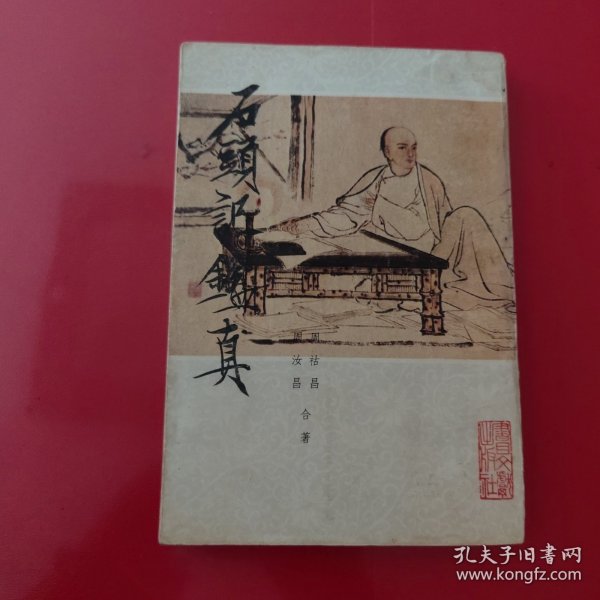 石頭記鑒真
周祜昌
周汝昌 合著
書目文獻
出版社
孔夫子旧书网
www.kongfz.com